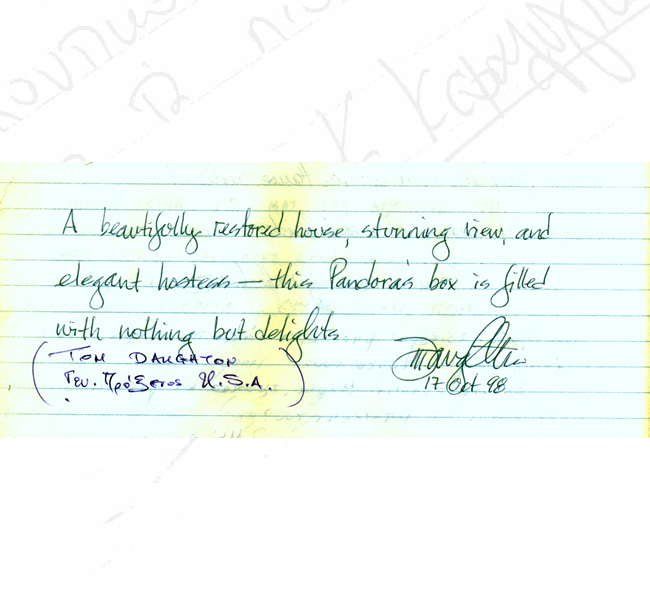 A beautifully restored house, stunning view, and
elegant hostess — this Pandora's box is filled
with nothing but delights.
(TOM DAUGHTON
Γεν. Πρόξενος U.S.A.)
17 Oct 98